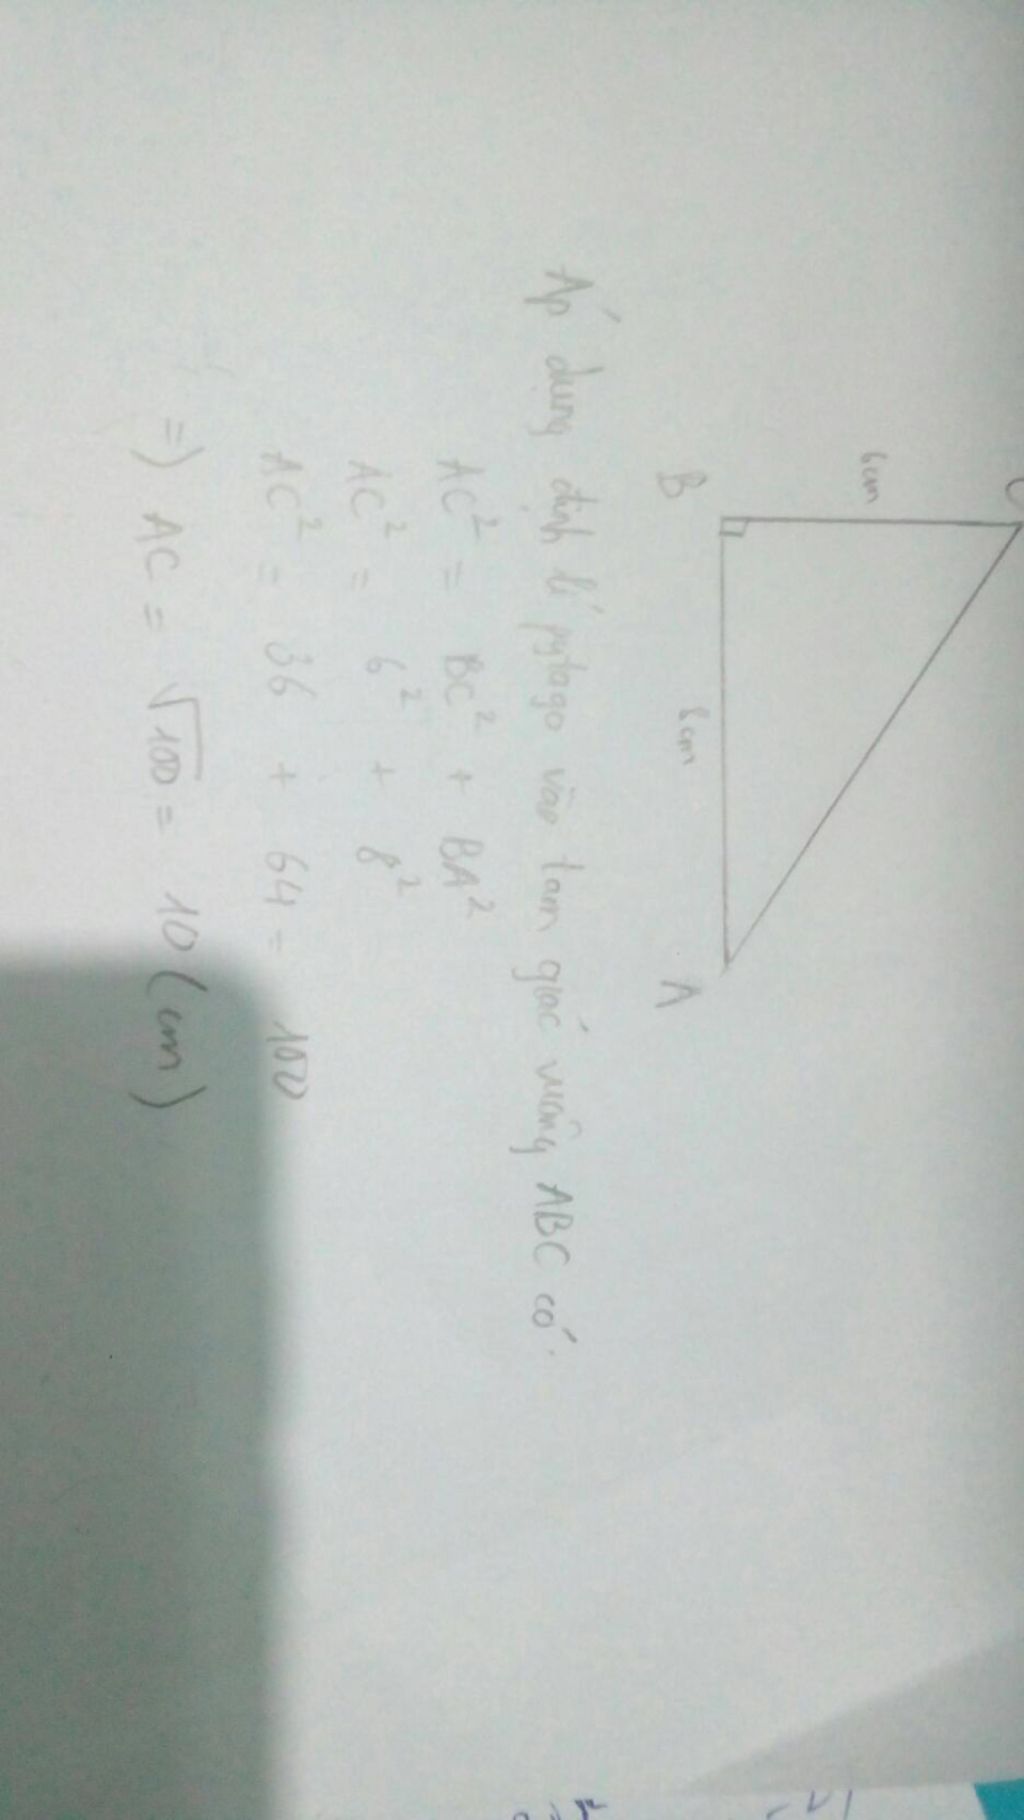 C
6cm
B
8cm
A
Áp dụng định lí pytago vào tam giác vuông ABC có
AC² = BC² + BA²
AC² = 6² + 8²
AC² = 36 + 64 = 100
=) AC = √100 = 10 (cm)